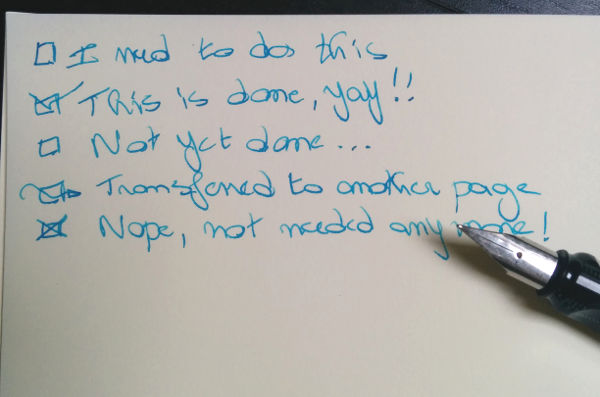 I need to do this
This is done, yay!!
Not yet done...
Transferred to another page
Nope, not needed anymore!